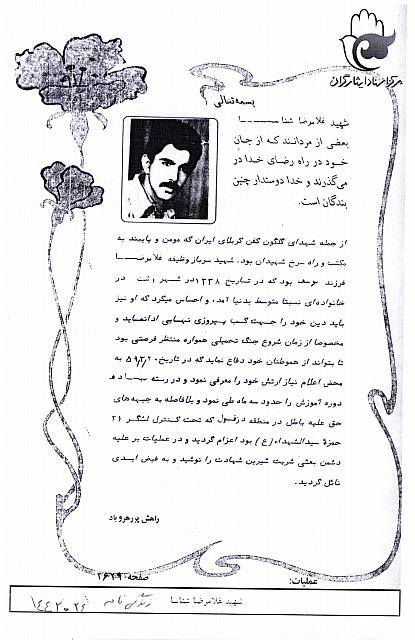 مرکز اسناد ایثارگران
بسمه تعالی
شهید غلامرضا شناسا
بعضی از مردانند که از جان
خود در راه رضای خدا در
می‌گذرند و خدا دوستدار چنین
بندگان است.
از جمله شهدای گلگون کفن کربلای ایران که مومن و پایبند به
مکتب و راه سرخ شهیدان بود. شهید سرباز وظیفه غلامرضا
فرزند یوسف بود که در تاریخ ۱۳۳۸ در شهر رشت در
خانواده‌ای نسبتا متوسط بدنیا آمد، و احساس میکرد که او نیز
باید دین خود را جهت کسب پیروزی نهایی ادا نماید و
مخصوصا از زمان شروع جنگ تحمیلی همواره منتظر فرصتی بود
تا بتواند از هموطنان خود دفاع نماید که در تاریخ به
محض اعلام نیاز ارتش خود را معرفی نمود و در رسته پیاده
دوره آموزش را حدود سه ماه طی نمود و بلافاصله به جبهه‌های
حق علیه باطل در منطقه دزفول که تحت کنترل لشگر ۲۱
حمزه سیدالشهداء (ع) بود اعزام گردید و در عملیات بر علیه
دشمن بعثی شربت شیرین شهادت را نوشید و به فیض ابدی
نائل گردید.
راهش پر رهرو باد
عملیات: صفحه: ۲۶۷۹
شهید غلامرضا شناسا زندگی نامه